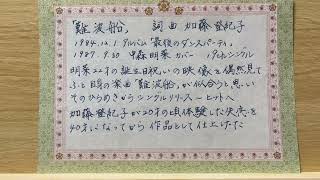 「難波船」　詞曲 加藤登紀子
1984.12.1 アルバム「最後のダンスパーティ」
1987.9.30 中森明菜 カバー 19thシングル
明菜22才の誕生日祝いの映像を偶然見て
ふと自身の楽曲「難波船」が似合うと思い
そのひらめきからシングルリリースーヒットへ
加藤登紀子が20才の頃体験した失恋を
40才になってから作品として仕上げた